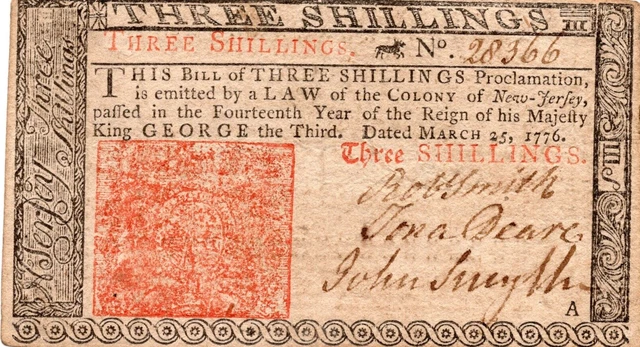 THREE SHILLINGS III
THREE SHILLINGS. No. 28366
THIS BILL of THREE SHILLINGS Proclamation,
is emitted by a LAW of the COLONY of New-Jersey,
paſſed in the Fourteenth Year of the Reign of his Majeſty
King GEORGE the Third. Dated MARCH 25, 1776.
Three SHILLINGS.
Robt Smith
Jona Deare
John Smyth
A
N. Jersey Three
Shillings
III S